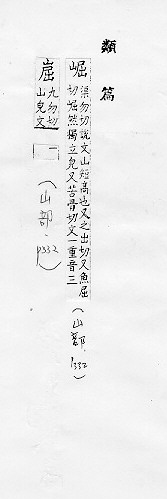 類篇
崛 渠勿切說文山短高也又之出切又魚屈
切崛然獨立皃又苦骨切文一重音三
(山部. p332)
崫 九勿切
山皃文一
(山部. p332)